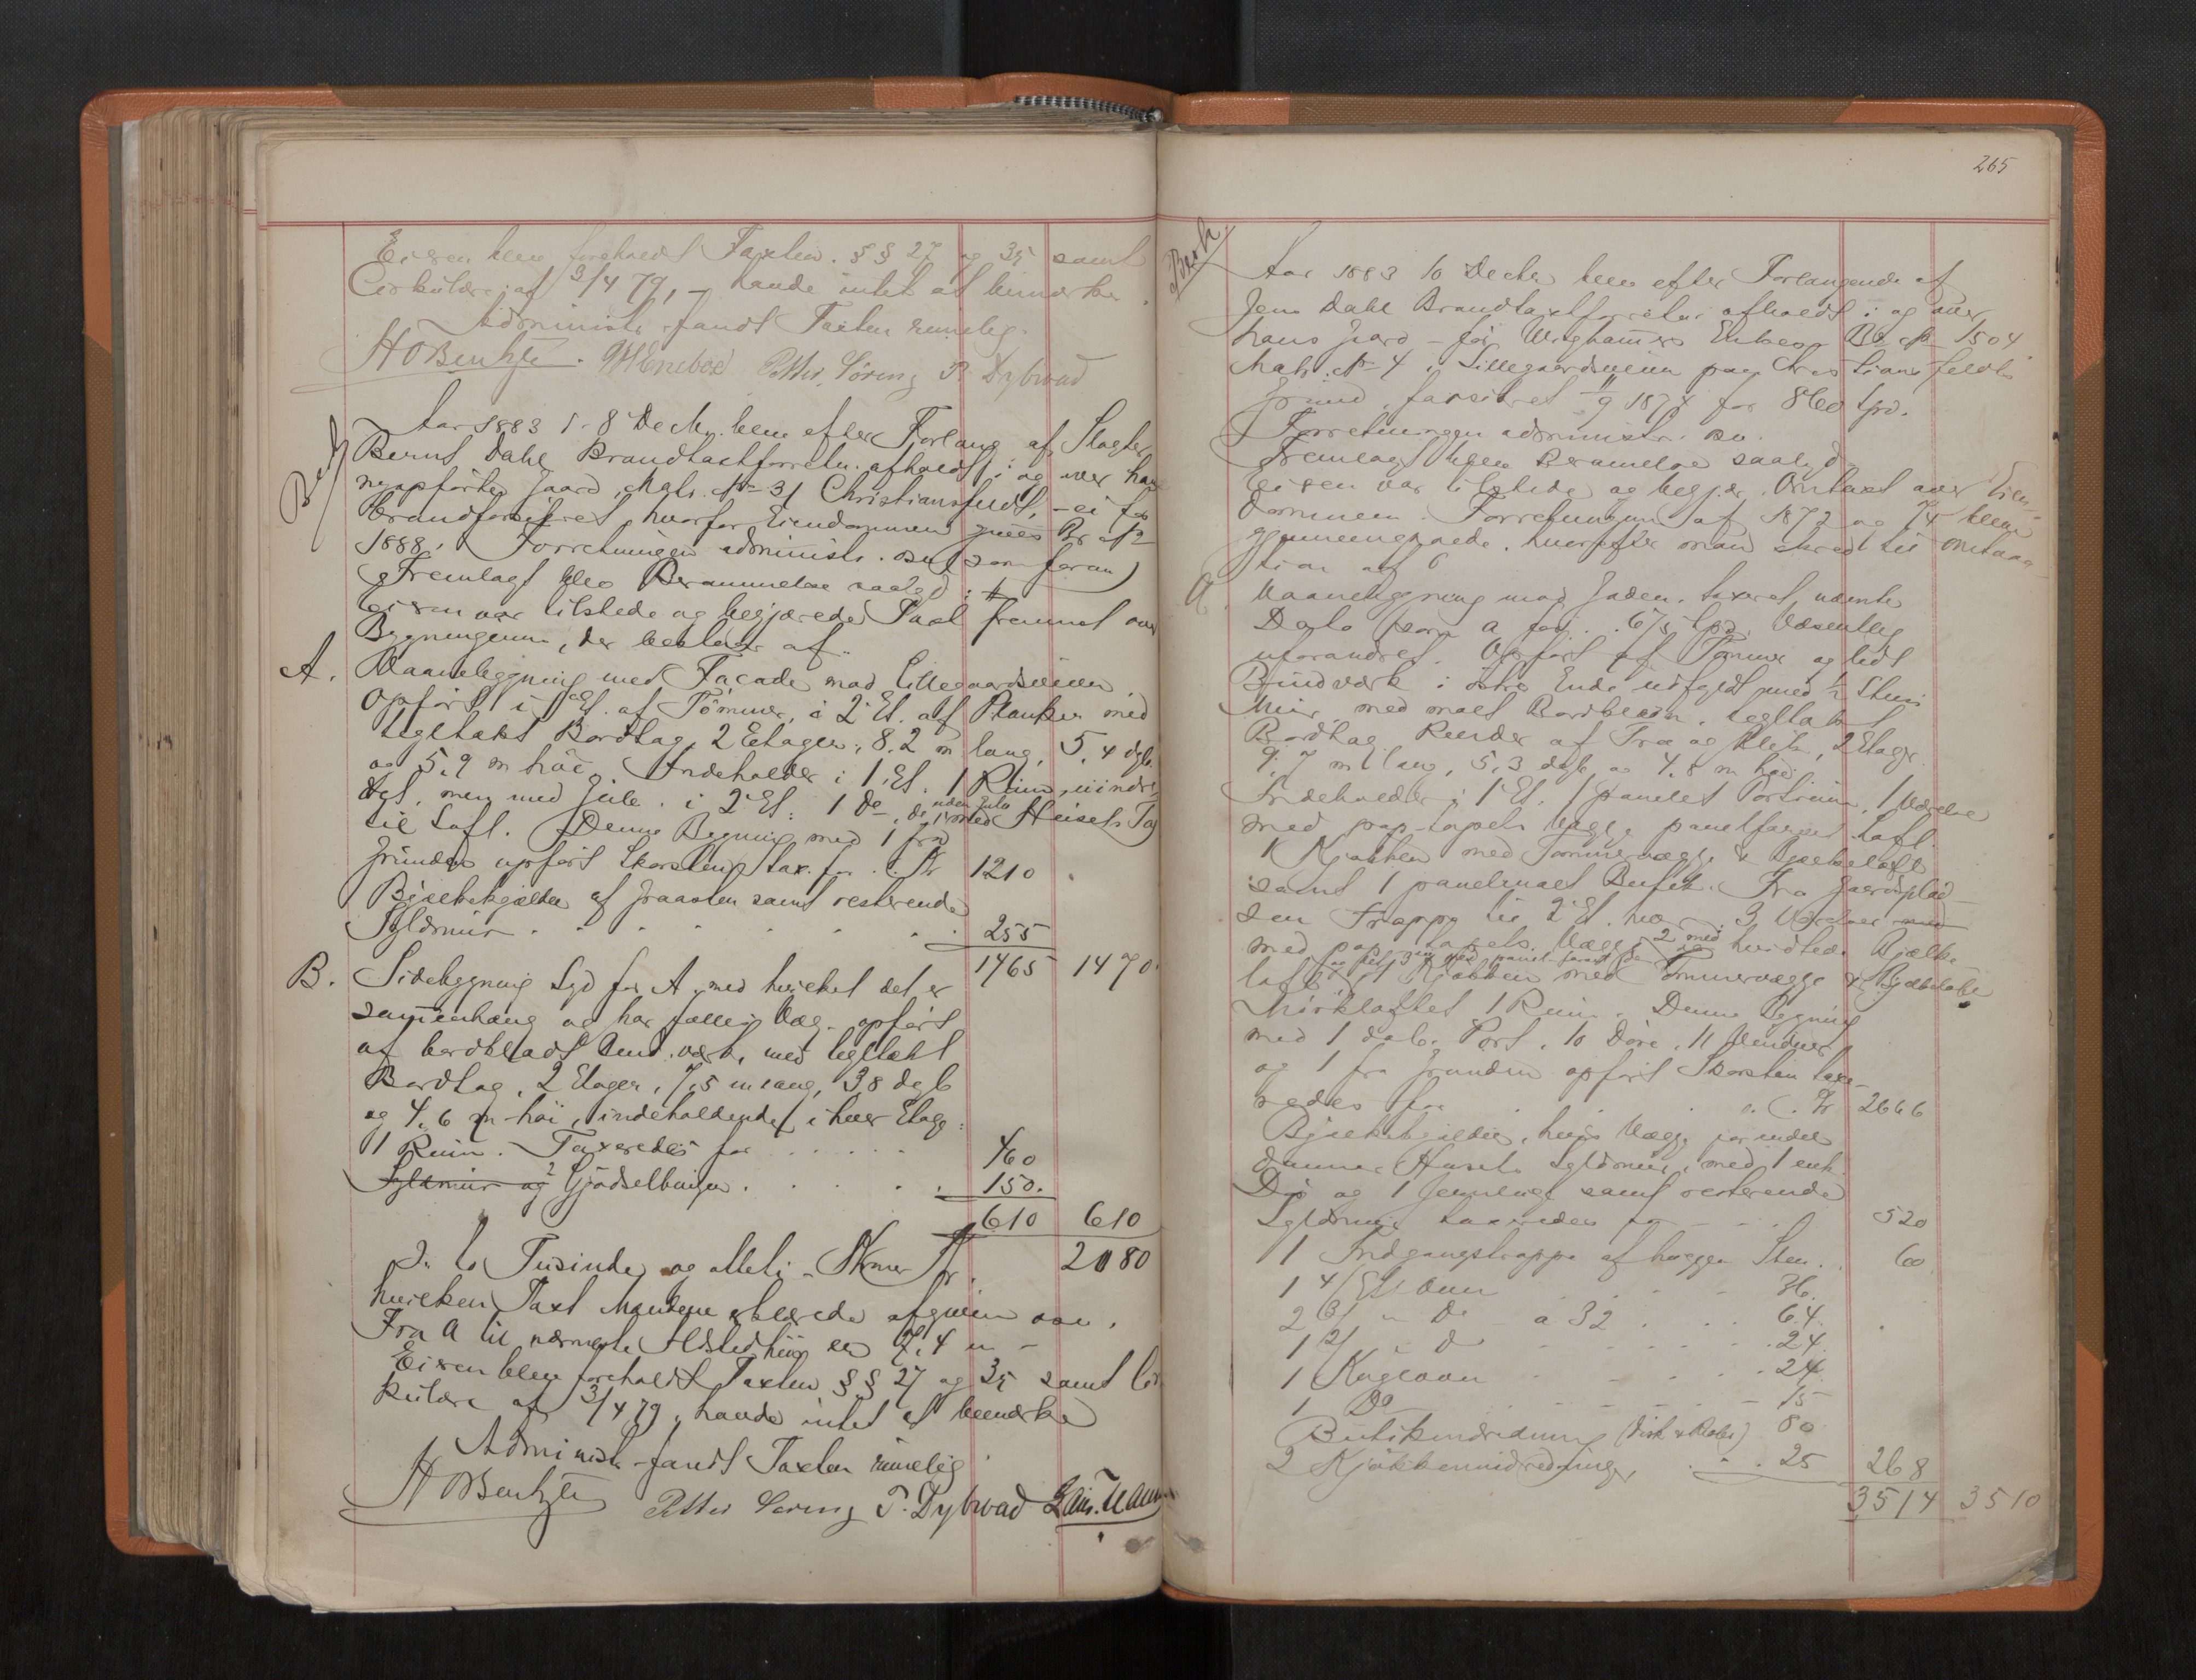 Eieren blev foreholdt Taxtlov. §§ 27 og 35 samt
Cirkulære af 3/4 79, – havde intet at bemærke.
Administr. fandt Taxten rimelig.
HOBentzen. Petter Söreng P. Dybwad
Besk
Aar 1883 d. 8 Decbr. blev efter Forlang. af Slagter
Bernt Dahl Brandtaxtforretn. afholdt i og over hans
nyopførte Gaard, Matr. No 31 Christiansfeldt, – ei før
brandforsikret, hvorfor Eiendommen gives Br. No
1888. Forretningen administr. (som foran)
Fremlagt blev Berammelse saalyd:
Eieren var tilstede og begjærede Taxt fremmet over
Bygningerne, der bestaar af:
A. Vaanebygning med Facade mod Lillegaardsveien.
Opført i 1 Et. af Tømmer, i 2 Et. af Planker med
tegltækt Bordtag, 2 Etager, 8.2 m lang, 5,4 dyb
og 5.9 m høi. Indeholder i 1. Et. 1 Rum uindre-
det, men med Gulv. i 2 Et: 1 do, do uden Gulv med Heisetr. Trap
til Loft. Denne Bygning med 1 fra
Grunden opført Skorsten tax. for . . Kr 1210
Bjælkekjælder af Graasten samt resterende
Syldmur . . . . . . . 255
1465 1470.
B. Sidebygning Syd for A, med hvilket det er
sammenhæng og har fælles Væg. opført
af bordklædt Bind. værk, med tegltækt
Bordtag, 2 Etager, 7,5 m lang, 3,8 dyb
og 4,6 m høi, indeholdende i hver Etage:
1 Rum. Taxeredes for . . . . . 460
Syldmur og 2 Gjødselbinger . . . . . 150.
610 610
2080
Er to Tusinde og otteti – Kroner Kr.
hvilken Taxt Mændene erklærede afgiven
Fra A til nærmeste Ildstedhus er 7,4 m –
Eieren blev foreholdt Taxtlov §§ 27 og 35 samt Cir-
kulære af 3/4 79, havde intet at bemærke
Administr. fandt Taxten rimelig
HOBentzen Petter Söreng P. Dybwad
265
Besk
Aar 1883 10 Decbr blev efter Forlangende af
Jens Dahl Brandtaxtforretn. afholdt i og over
hans Gaard – før Enkes Br. No 1504
Matr. No 4 i Lillegaardsveien paa Christiansfeldts
Grund, forsikret 1874 for 860 Spd.
Forretningen administr. so.
Fremlagt blev Berammelse saalyd
Eieren var tilstede og begjær. Omtaxt over Eien-
dommen. Forretningen af 1872 og 74 blev
gjennemgaaede, hvorefter man skred til omtaxa-
tion af
A. Vaanebygning mod Gaden, taxeret nævnte
Dato som a for . . 675 Spd. Væsentlig
uforandret. Opført af Tømmer og lidt
Bindværk i østre Ende udfyldt med 1/2 Stens
Mur, med malt Bordklædn. tegltækt
Bordtag, Render af Træ og Blik, 2 Etager
9,7 m lang, 5,3 dyb og 4,8 m høi
Indeholder i 1 Et. 1 panelet Portrum, 1 Værelse
med pap-tapets. Vægge panelfarvet Loft.
1 Kjøkken med Tømmervægge & Bjælkeloft
samt 1 panelmalt Butik. Fra Gaardsplad-
sen Trappe til 2 Et. hvor. 3 Værelser med
med pap-tapets. Vægge 2 med hvidtede Bjælke
loft, 1 Kjøkken med Tømmervægge & Bjælkeloft
Mørkloftet 1 Rum. Denne Bygning
med 1 dob. Port, 10 Døre, 11 Vinduer
og 1 fra Grunden opført Skorsten taxe-
redes for . . . . . Kr 2666
Bjælkekjælder, hvis Vægge for endel
danner Husets Syldmur, med 1 enk.
Dør og 1 Jernluge samt resterende
Syldmur taxeredes for . . . 520
1 Indgangstrappe af huggen Sten . 60
1 4/Et. Ovn . . . . 36.
2 3/ " Do a 32 . . . 64.
1 2/ " d . . . . 24.
1 Kogeovn . . . . 24.
1 Do . . . . 15
Butikindredning (Disk & Reoler) 80
2 Kjøkkenindredninger . . . 25 268
3514 3510